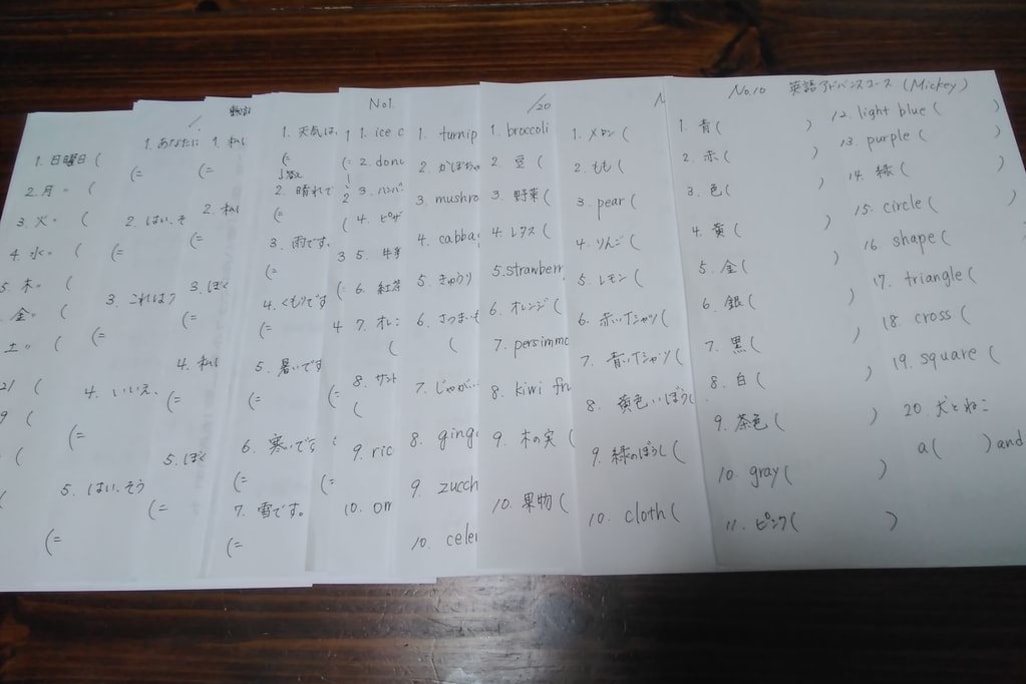 1. 日曜日 (
2. 月〃 (
3. 火〃 (
4. 水〃 (
5. 木〃 (
金〃 (
土〃 (
(
(
(
1. あなたに
(=
2. はい、そ
(=
3. これは
(=
4. いいえ、
(=
5. はい、そう
(=
1. 私
(=
2. 私
(=
3. ぼく
(=
4. 私
(=
5. ぼく
(=
1. 天気は、
(=
2. 晴れで
(=
3. 雨です。
(=
4. くもりです
(=
5. 暑いです
(=
6. 寒いです
(=
7. 雪です。
(=
No1.
1. ice c
2. donu
3. ハンバ
4. ピザ
5. 牛
6. 紅茶
7. オレ
(
8. サンド
(
9. ric
10. om
1. turnip
2. かぼちゃ
3. mushro
4. cabba
5. きゅうり
6. さつまいも
(
7. じゃがい
8. ging
9. zucch
10. celer
/20
1. broccoli
2. 豆 (
3. 野菜 (
4. レタス (
5. strawberr
6. オレンジ (
7. persimmo
8. kiwi fr
9. 木の実 (
10. 果物 (
1. メロン (
2. もも (
3. pear (
4. りんご (
5. レモン (
6. 赤いTシャツ (
7. 青いTシャツ (
8. 黄色いぼうし (
9. 緑のぼうし (
10. cloth (
No.10 英語アドバンスコース (Mickey)
1. 青 ( )
2. 赤 ( )
3. 色 ( )
4. 黄 ( )
5. 金 ( )
6. 銀 ( )
7. 黒 ( )
8. 白 ( )
9. 茶色 ( )
10. gray ( )
11. ピンク ( )
12. light blue ( )
13. purple (
14. 緑 (
15. circle (
16. shape (
17. triangle (
18. cross (
19. square (
20. 犬とねこ
a ( ) and